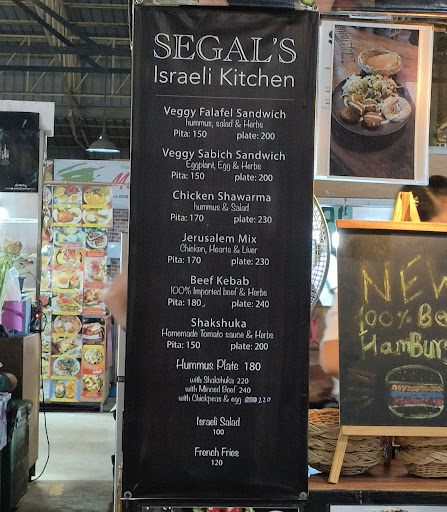 SEGAL'S
Israeli Kitchen
Veggy Falafel Sandwich
hummus, salad & Herbs
Pita: 150 plate: 200
Veggy Sabich Sandwich
Eggplant, Egg & Herbs
Pita: 150 plate: 200
Chicken Shawarma
hummus & Salad
Pita: 170 plate: 230
Jerusalem Mix
Chicken, Hearts & Liver
Pita: 170 plate: 230
Beef Kebab
100% Imported beef & Herbs
Pita: 180 plate: 240
Shakshuka
Homemade Tomato sauce & Herbs
Pita: 150 plate: 200
Hummus Plate 180
with Shakshuka 220
with Minced Beef 240
with Chickpeas & egg 220
Israeli Salad
100
French Fries
120
NEW
100% Be
HamBurg